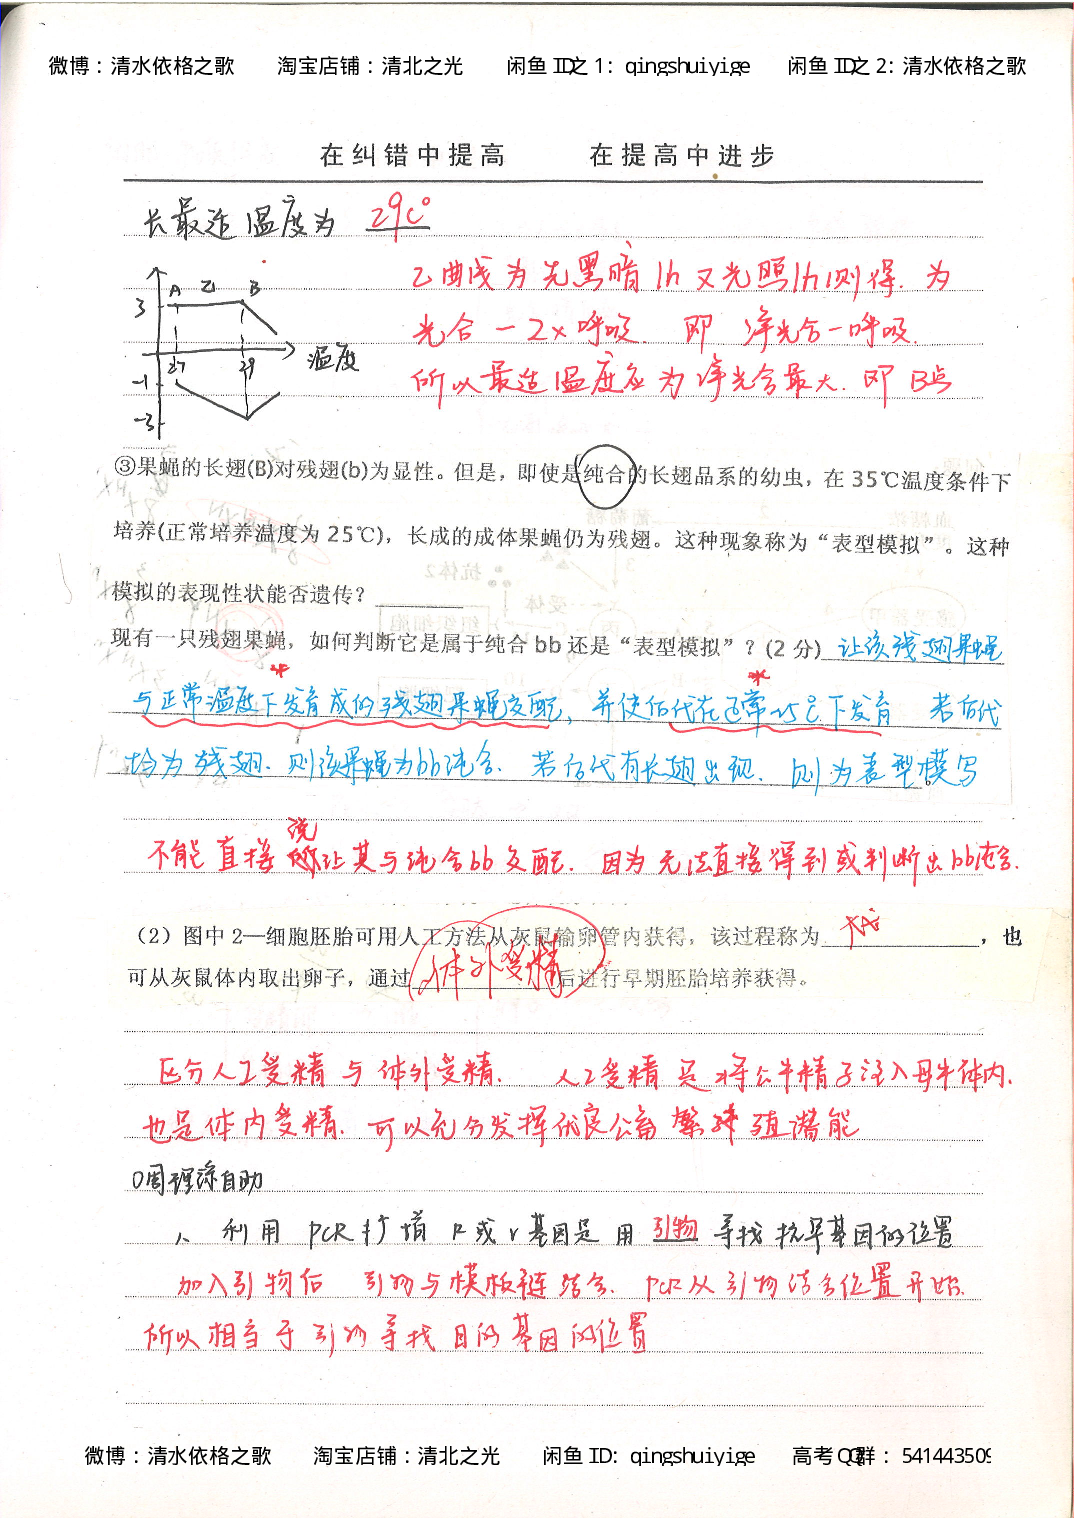 微博：清水依格之歌 淘宝店铺：清北之光 闲鱼 ID之 1: qingshuiyige 闲鱼 ID之 2: 清水依格之歌
在纠错中提高 在提高中进步
长最适温度为 29C°
乙曲线为先黑暗1h又光照1h则得.为
光合-2x呼吸. 即 净光合-呼吸.
所以最适温度应为净光合最大.即B点
A 乙 B
3
27 29 温度
-1
-3
③果蝇的长翅(B)对残翅(b)为显性。但是，即使是纯合的长翅品系的幼虫，在 35℃温度条件下
培养(正常培养温度为 25℃)，长成的成体果蝇仍为残翅。这种现象称为“表型模拟”。这种
模拟的表现性状能否遗传？
现有一只残翅果蝇，如何判断它是属于纯合 bb 还是“表型模拟”？(2 分) 让该残翅果蝇
与正常温度下发育成的残翅果蝇交配，并使后代在正常25℃下发育 若后代
均为残翅.则该果蝇为bb纯合.若后代有长翅出现.则为表型模写
不能直接说让其与纯合bb交配.因为无法直接得到或判断出bb纯合.
（2）图中 2—细胞胚胎可用人工方法从灰鼠输卵管内获得，该过程称为 ，也
可从灰鼠体内取出卵子，通过 体外受精 后进行早期胚胎培养获得。
区分人工受精与体外受精. 人工受精是将公牛精子注入母牛体内.
也是体内受精.可以充分发挥优良公畜繁殖潜能
周理综自助
1、利用PCR扩增R或r基因是用引物寻找抗旱基因的位置
加入引物后 引物与模板链结合.PCR从引物结合位置开始.
所以相当于引物寻找目的基因的位置
微博：清水依格之歌 淘宝店铺：清北之光 闲鱼 ID: qingshuiyige 高考 QQ群：541443509